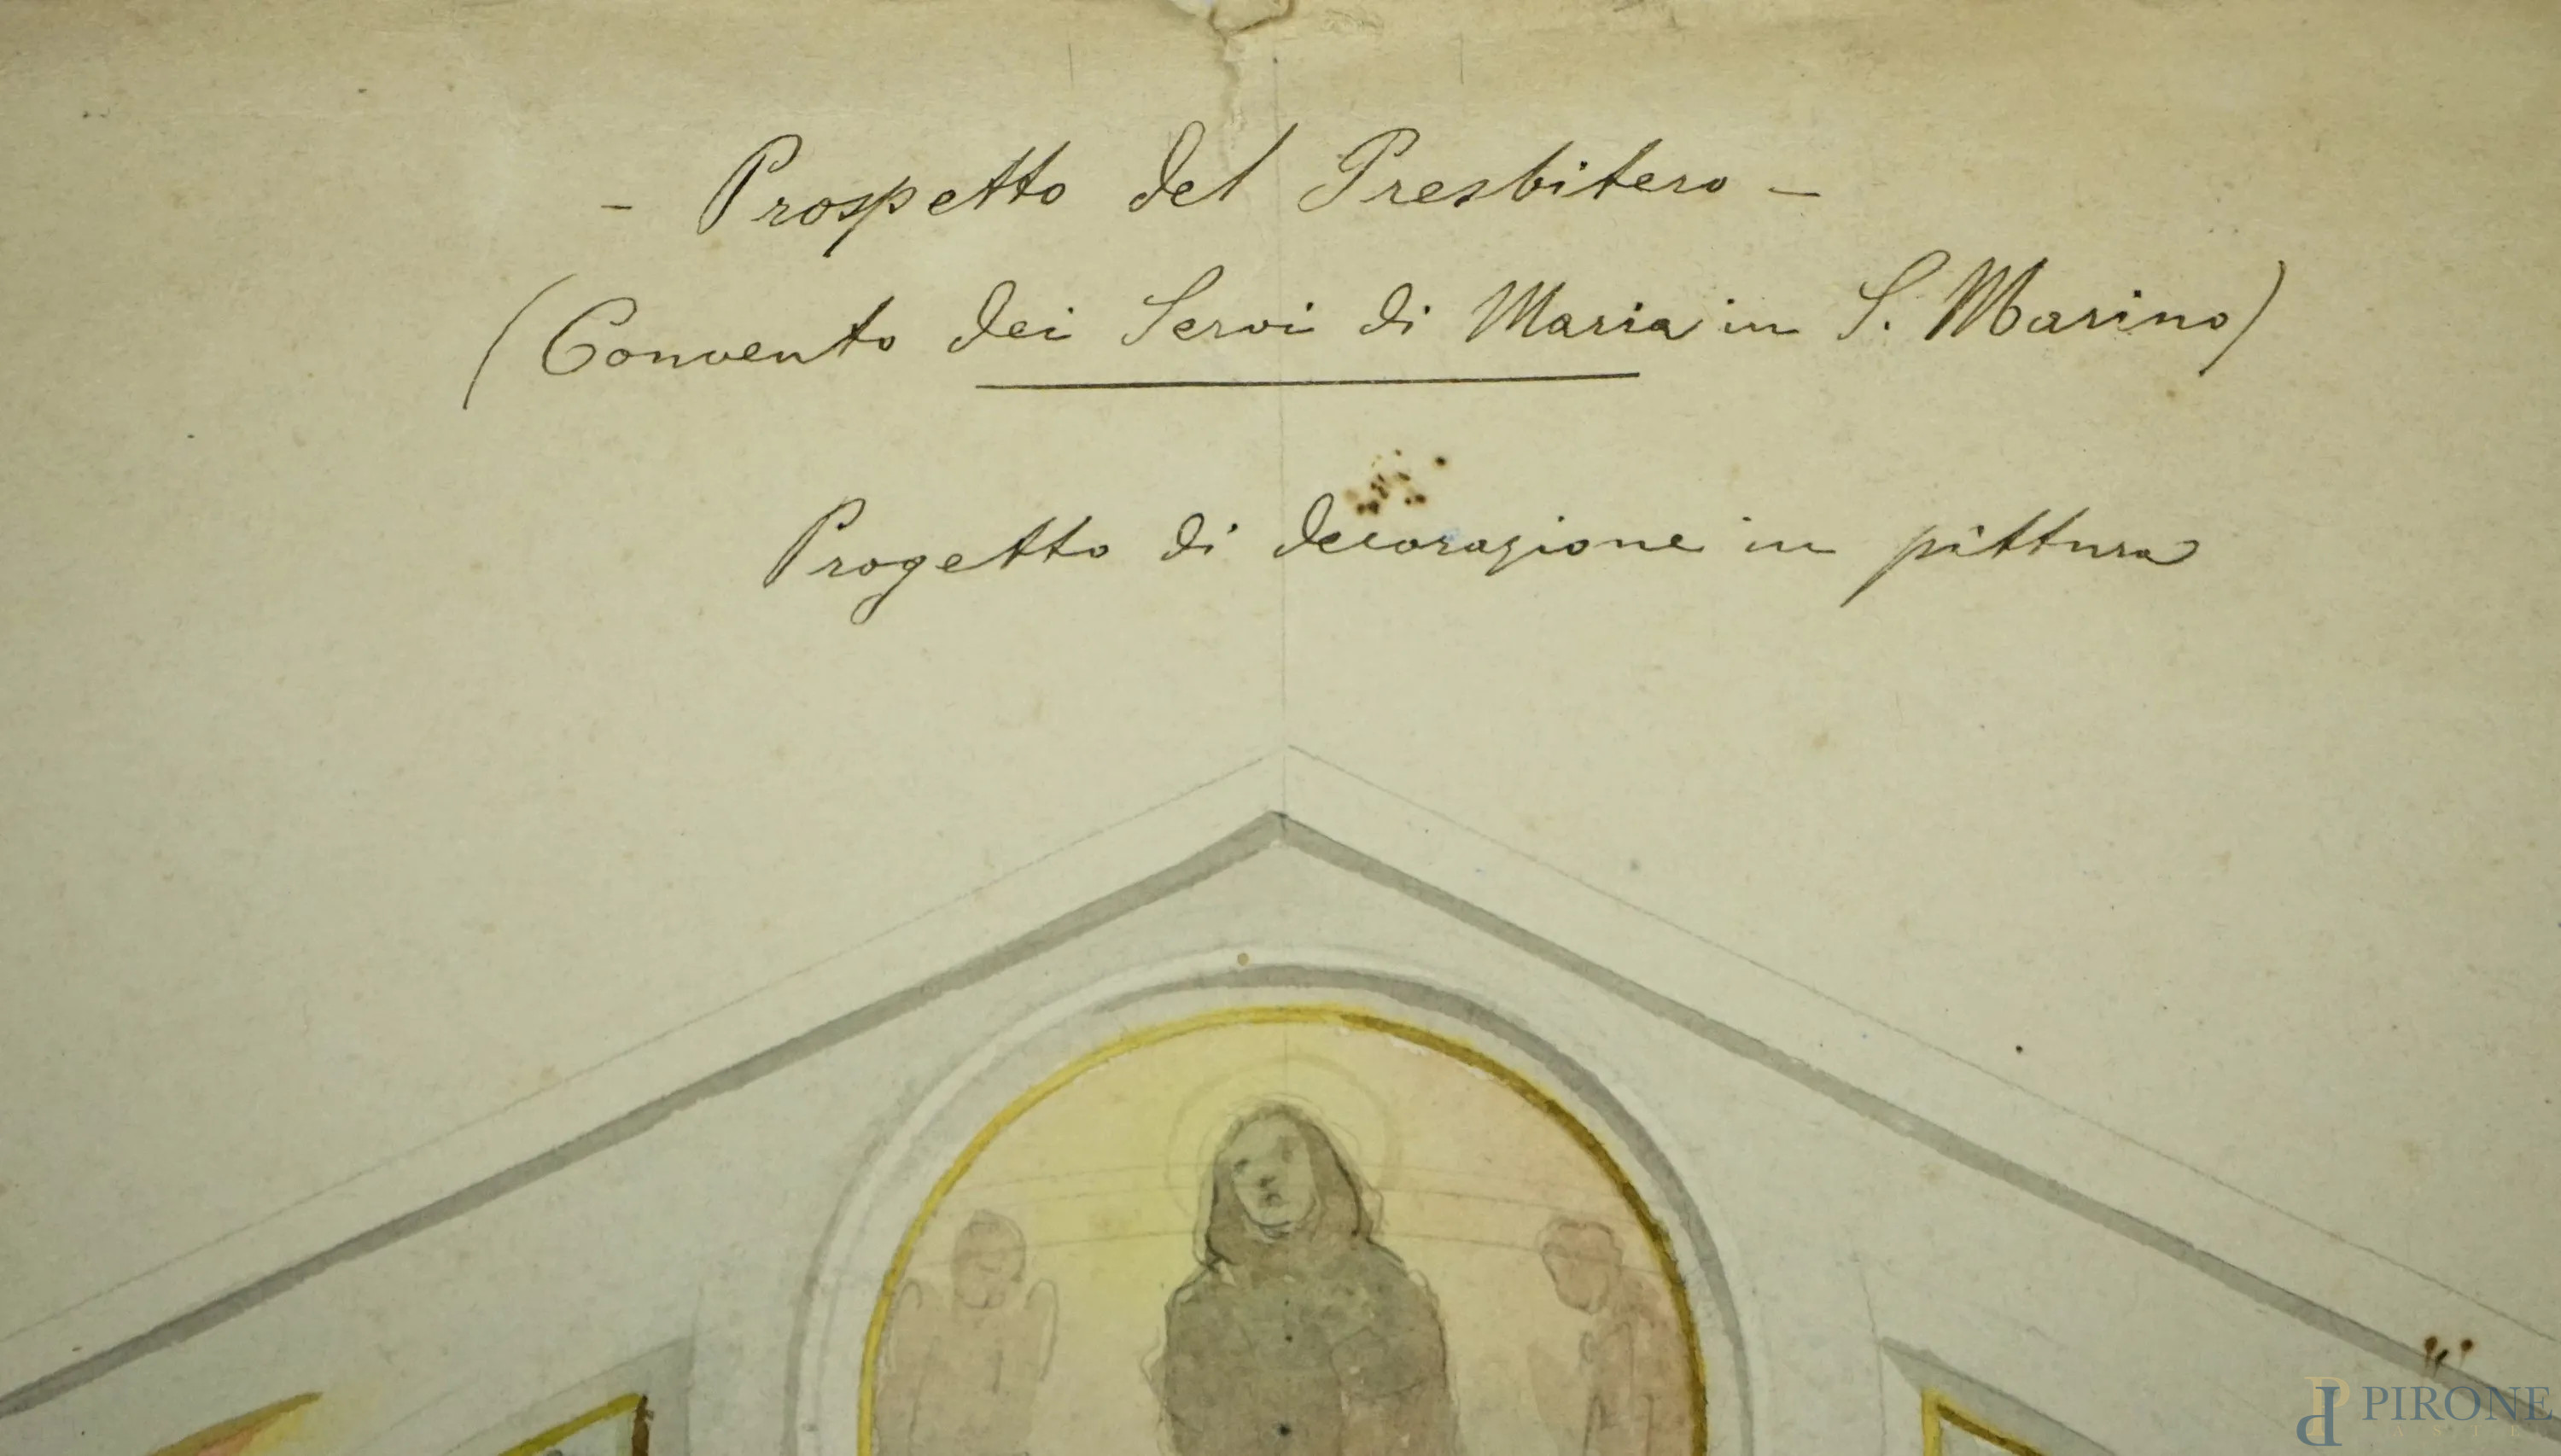 - Prospetto del Presbitero -
(Convento dei Servi di Maria in S. Marino)
Progetto di decorazione in pittura
PIRONE
ASTE